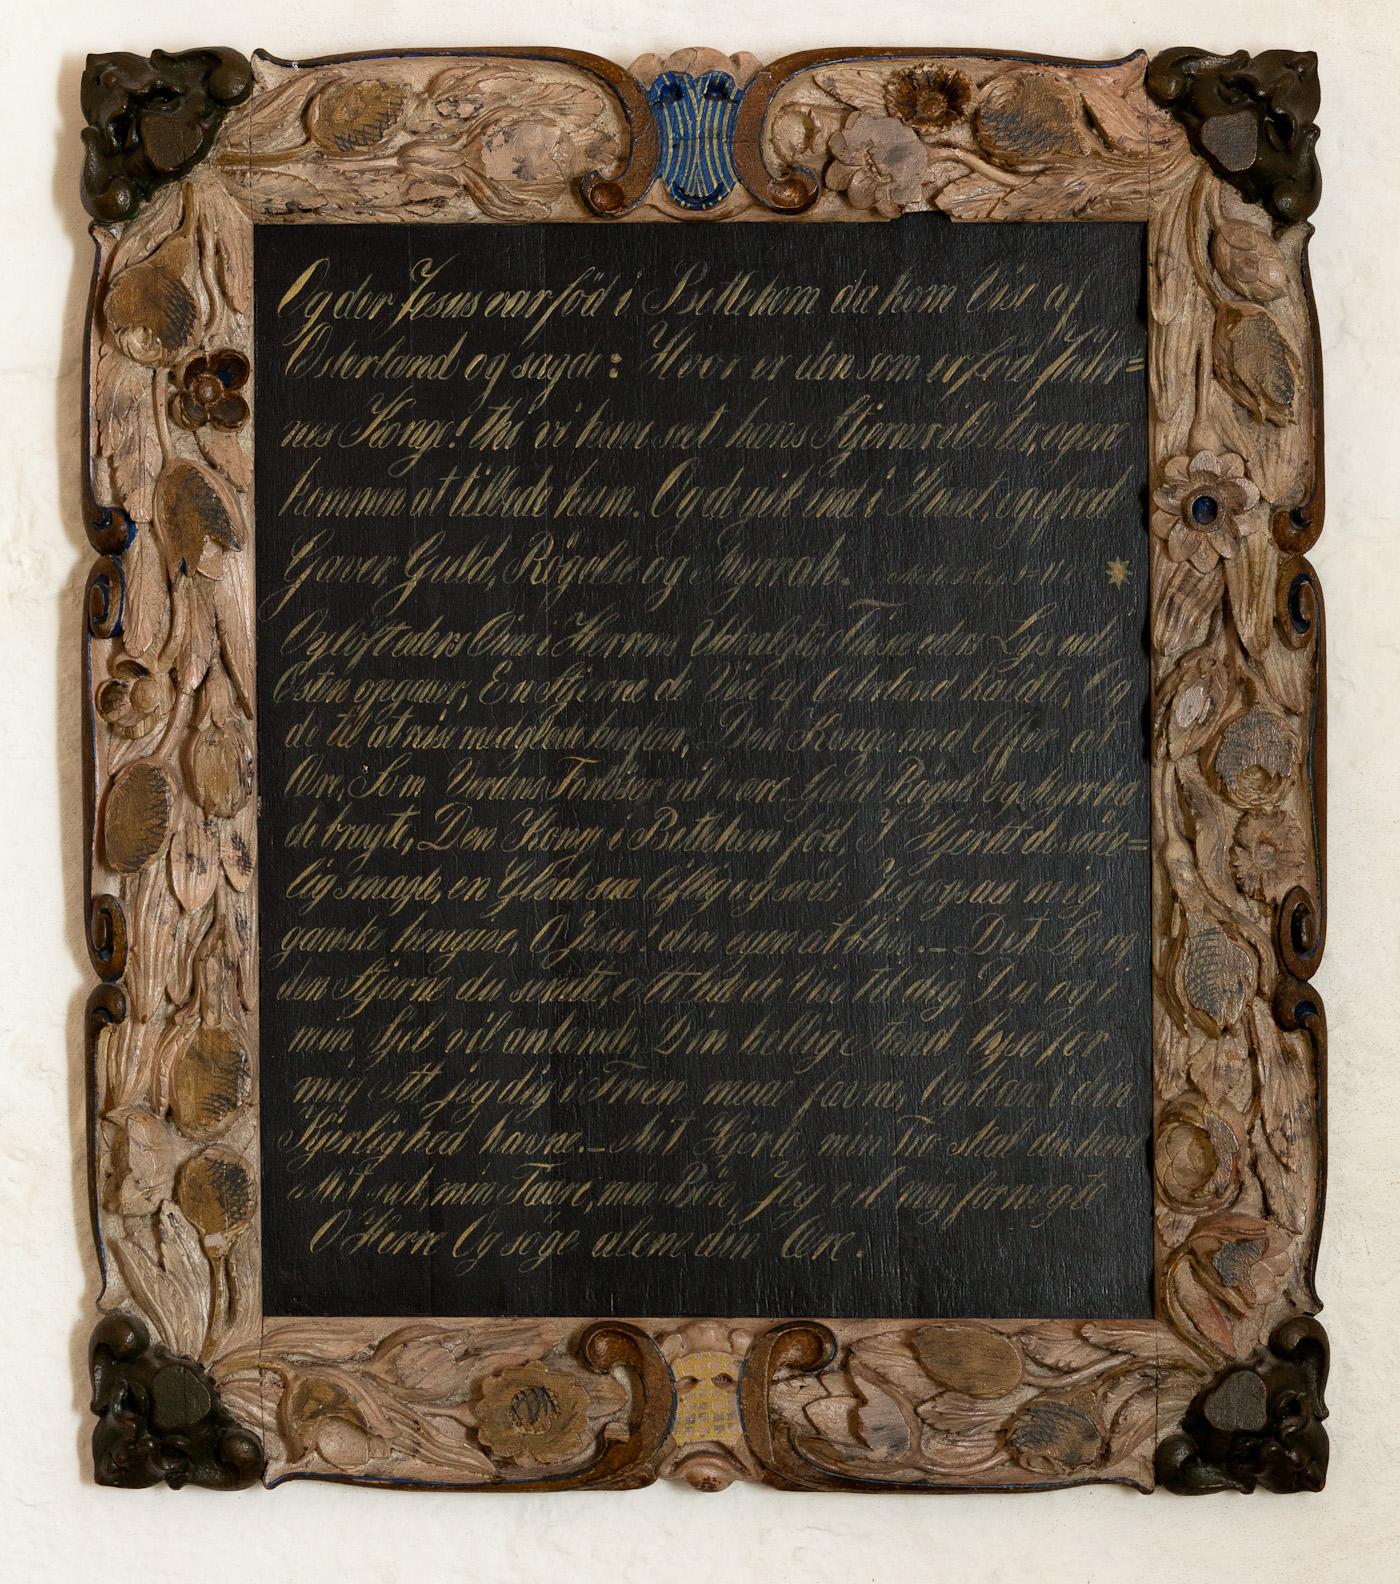 Og der Jesus var föd i Betlehem da kom Vise af
Österland og sagde: Hvor er den som er föd Jöder=
nes Konge! thi vi have set hans Stjerne i Östen, og ere
kommen at tilbede ham. Og de gik ind i Huset, ofred
Gaver Guld, Rögelse og Myrrah.
Oplöft eders Öine i Herrens Udvalgte, Önske eders Lys ude
Östen opgaaer, En Stjerne de Vise af Österland kaldte, Og
de til at reise med glæde henfan, Den Konge med Offer at
Ære, Som Verdens Forlöser vil være_ Guld Rögelse og Myrrha
de bragte, Den Kong i Betlehem föd, I Hjertet de
lig smagte, en Glæde saa liflig og söd: Jeg ogsaa mig
ganske hengive, O Jesu! din egen at blive._ Det Lys og
den Stjerne du sendte, at lede de Vise til dig, Du og i
min Siel vil antænde, Din hellig Aand lyse for
mig At jeg dig i Troen maae favne, Og kan i din
Kjerlighed havne._ Mit Hjerte, min Tro skal du have
Mit suk, min Taare, min Bön, Jeg vil mig fornegte
O Herre Og söge alene din Ære.